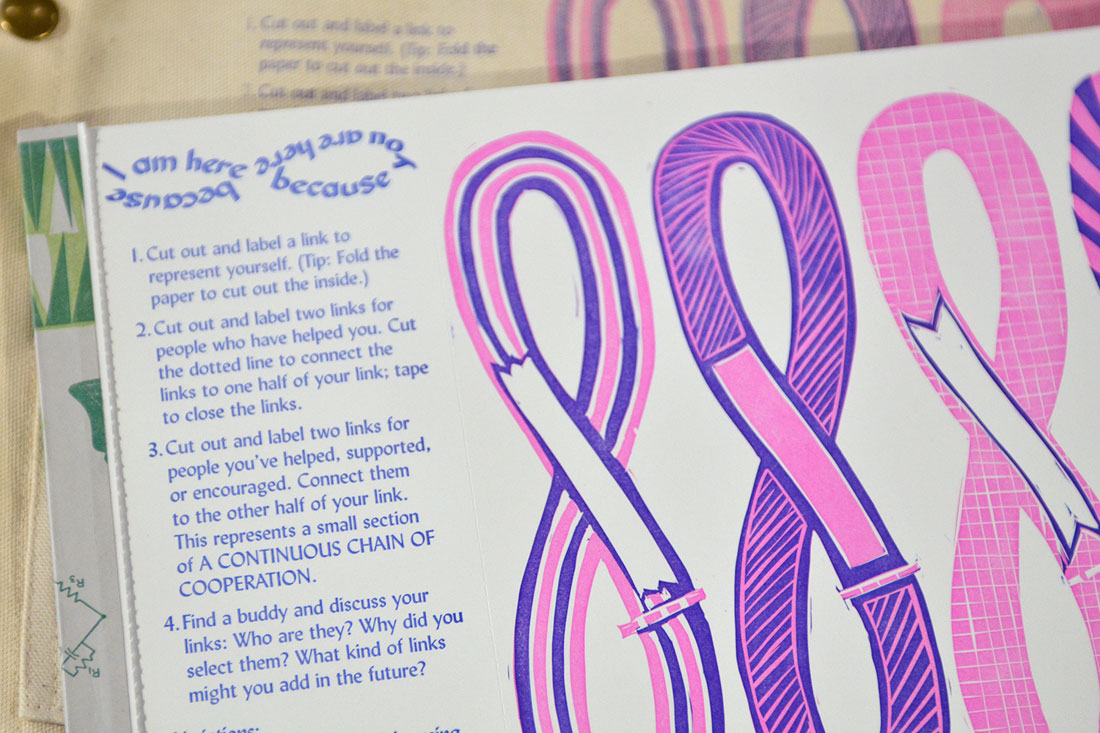 1. Cut out and label a link to
represent yourself. (Tip: Fold the
paper to cut out the inside.)
I am here because
you are here because
1. Cut out and label a link to
represent yourself. (Tip: Fold the
paper to cut out the inside.)
2. Cut out and label two links for
people who have helped you. Cut
the dotted line to connect the
links to one half of your link; tape
to close the links.
3. Cut out and label two links for
people you've helped, supported,
or encouraged. Connect them
to the other half of your link.
This represents a small section
of A CONTINUOUS CHAIN OF
COOPERATION.
4. Find a buddy and discuss your
links: Who are they? Why did you
select them? What kind of links
might you add in the future?
R3
R1